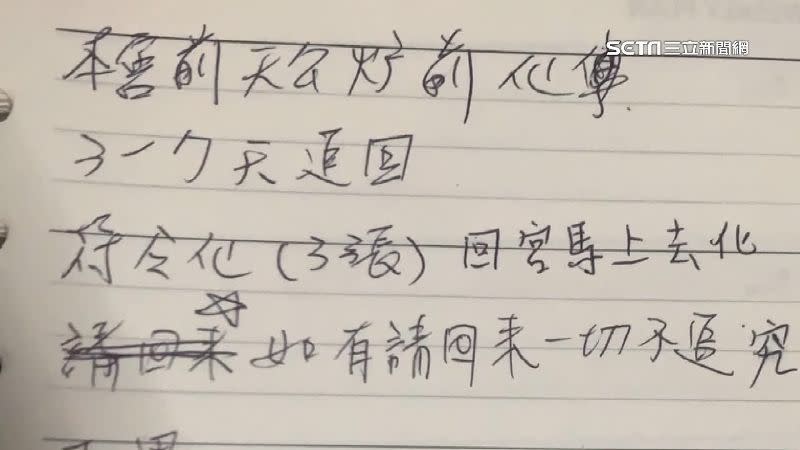 SETN 三立新聞網
本宮前天公爐前化傳
3－7天追回
符令化(3張)回宮馬上去化
請回來☆如有請回来一切不追究